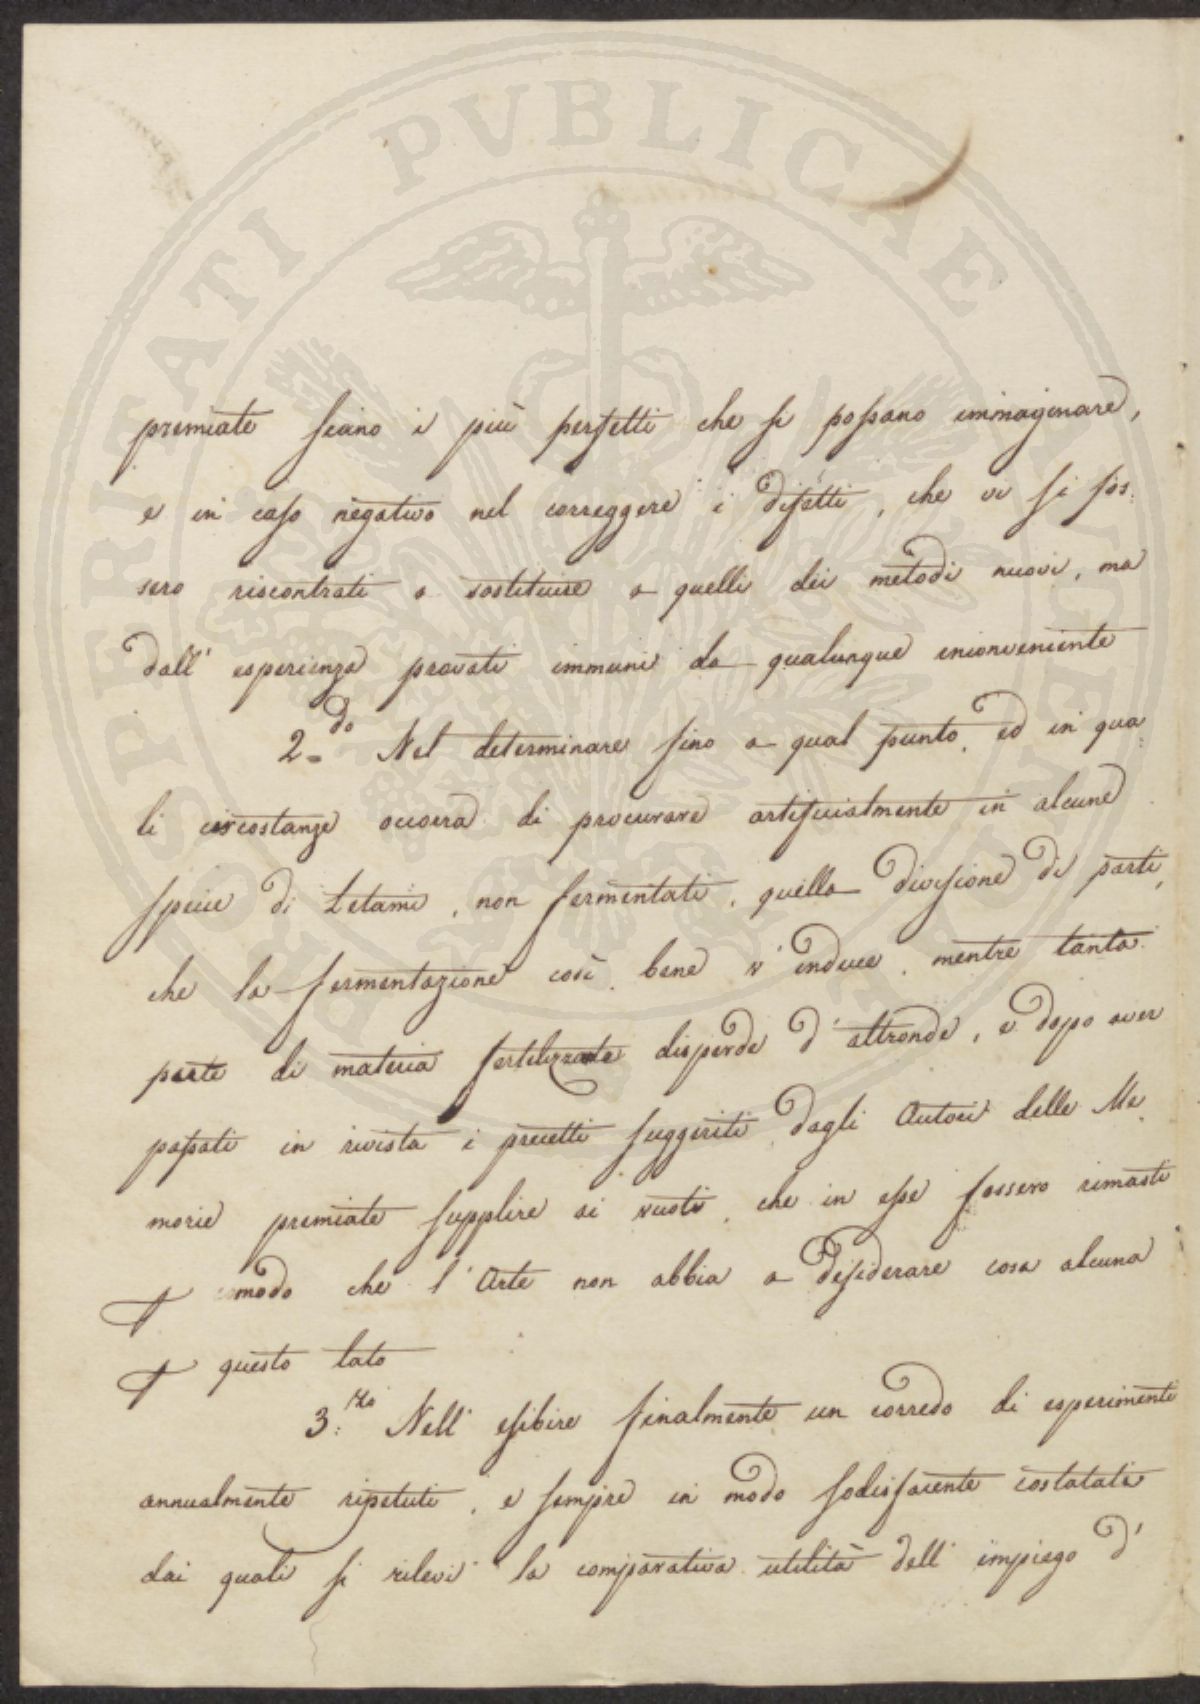 PROSPERITATI PUBLICAE AUGENDAE
premiate siano i più perfetti che si possano immaginare,
e in caso negativo nel correggere i difetti, che vi si fos:
sero riscontrati o sostituire a quelli dei metodi nuovi, ma
dall' esperienza provati immuni da qualunque inconveniente
2.do Nel determinare fino a qual punto, ed in qua:
li circostanze occorra di procurare artificialmente in alcune
specie di Letami, non fermentati, quella divisione di parti,
che la fermentazione così bene v' induce, mentre tanta
parte di materia fertilizzante disperde d' altronde, e dopo aver
passati in rivista i precetti suggeriti dagli Autori delle Me
morie premiate supplire ai vuoti, che in esse fossero rimasti
modo che l' Arte non abbia a desiderare cosa alcuna
questo lato
3:zo Nell' esibire finalmente un corredo di esperimenti
annualmente ripetuti, e sempre in modo sodisfaciente costatati
dai quali si rilevi la comparativa utilità dell' impiego d'